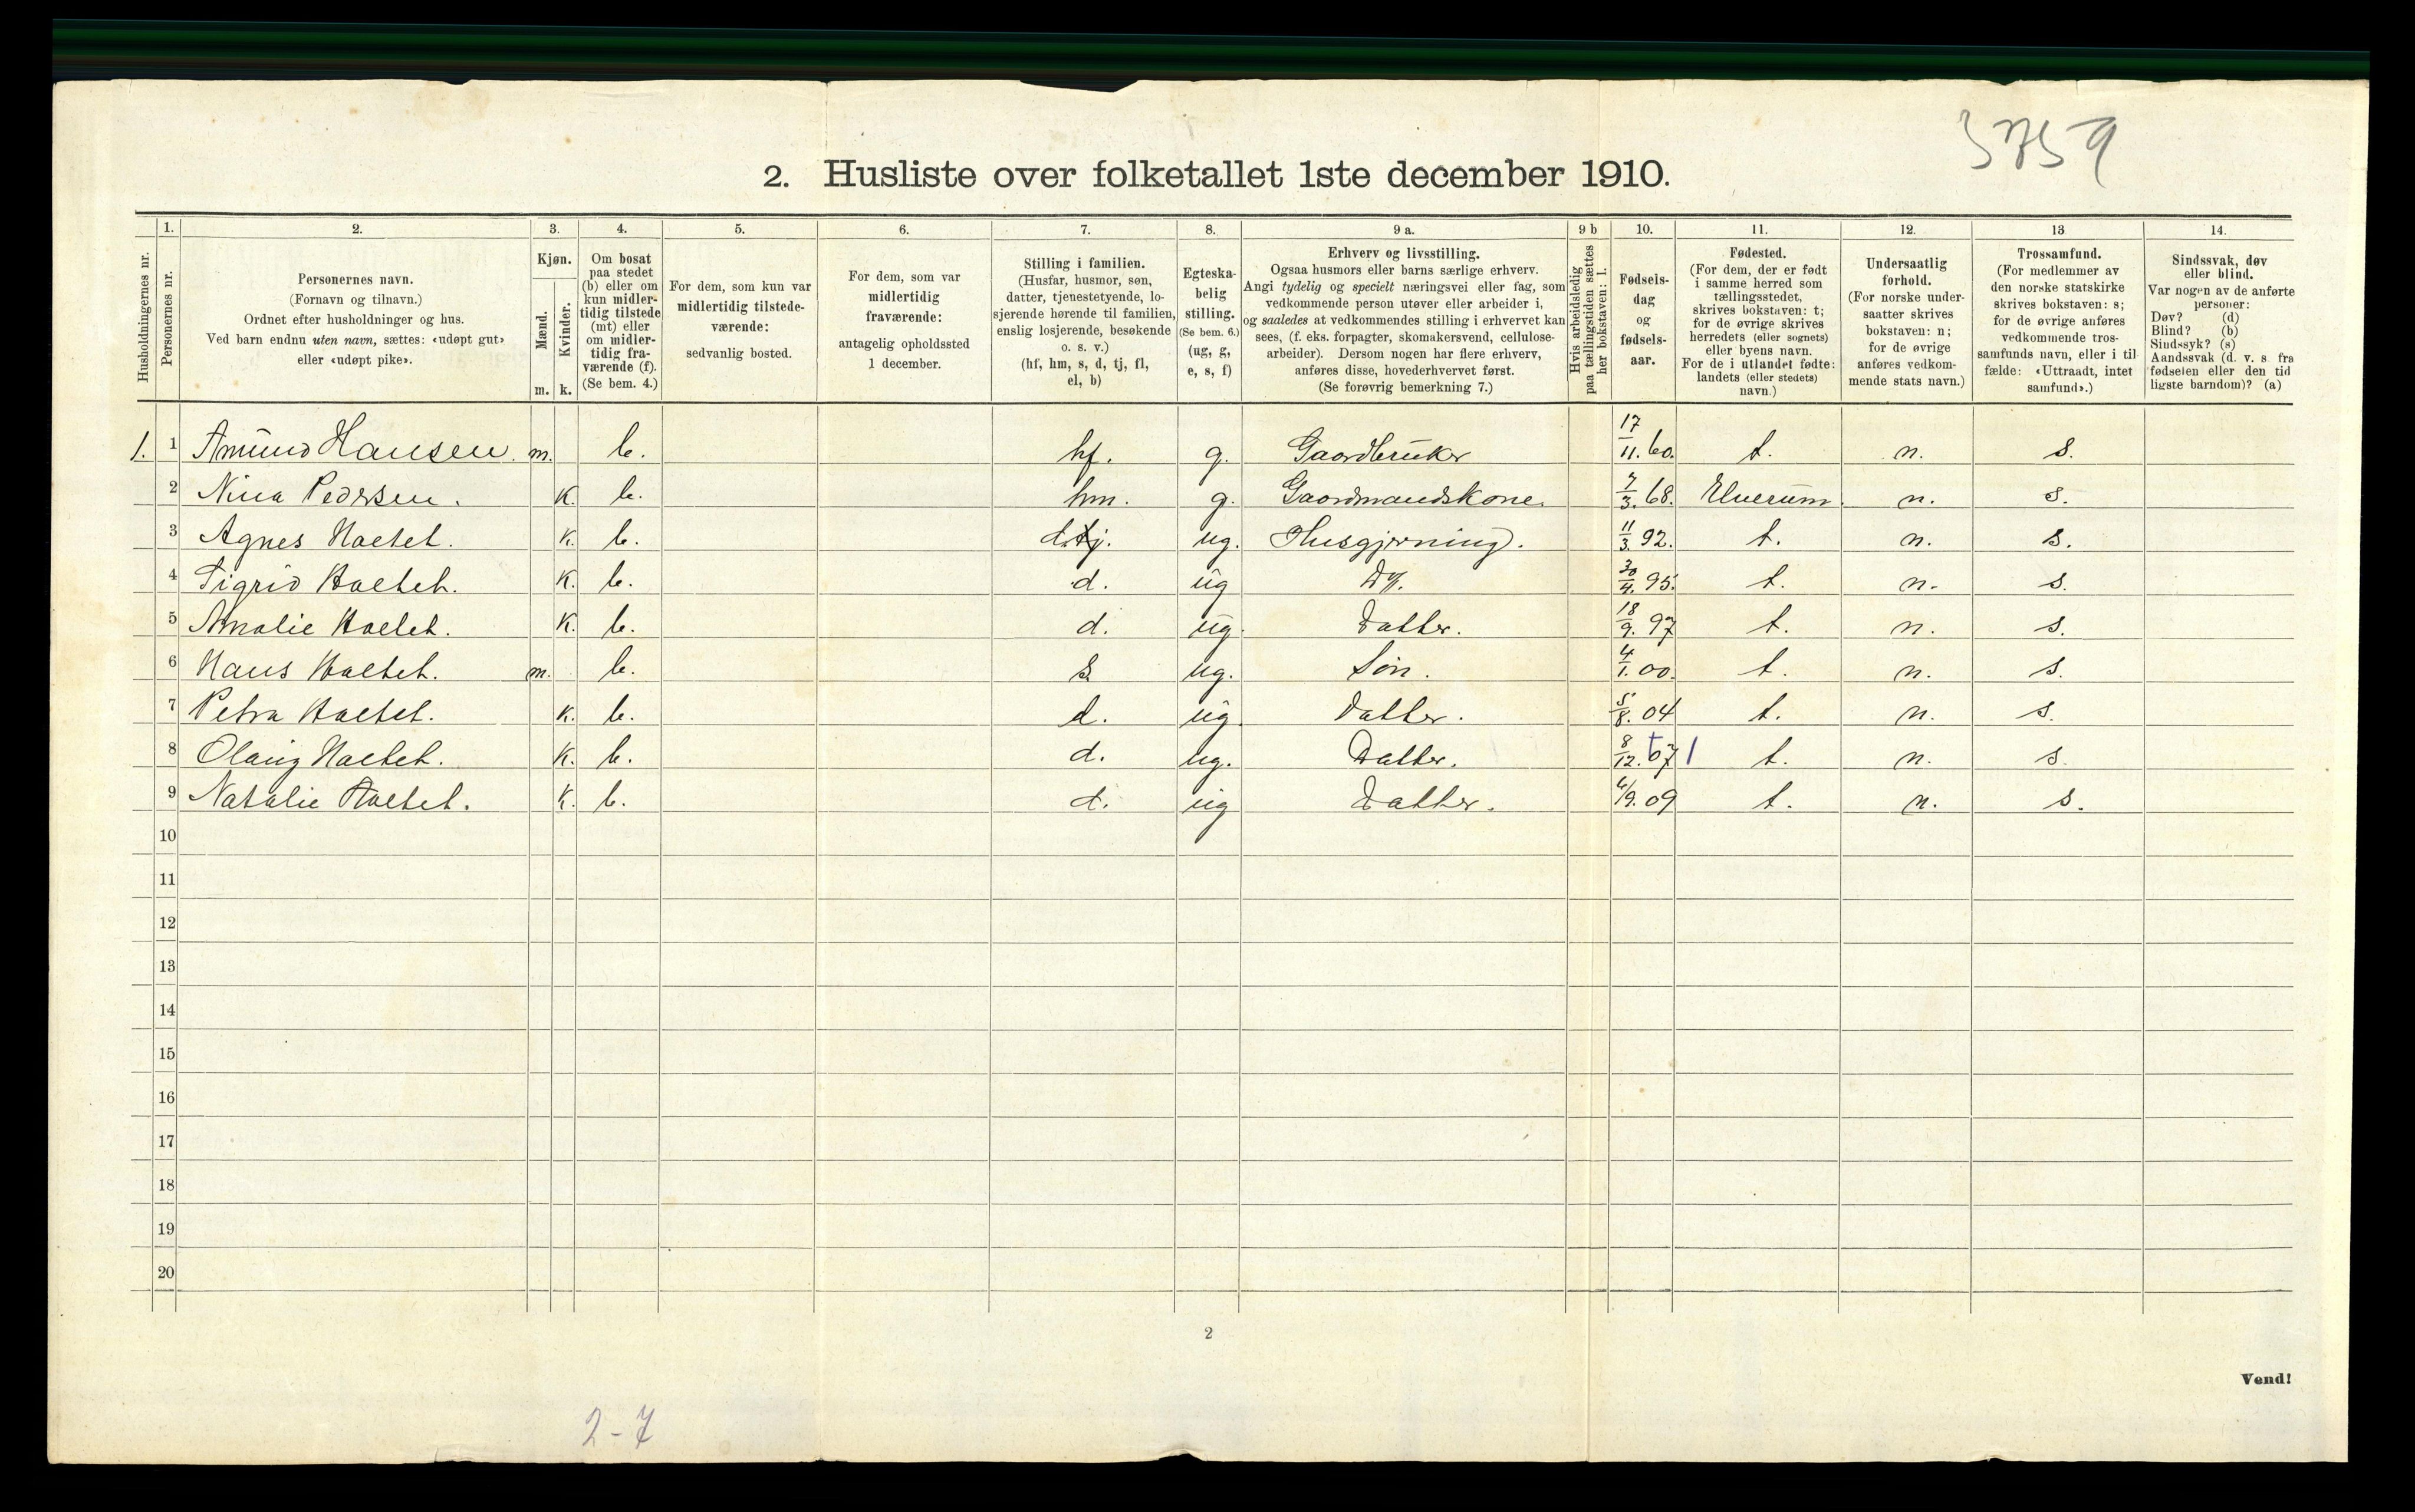 3759
2. Husliste over folketallet 1ste december 1910.
Husholdningernes nr.
1.
Personernes nr.
2.
Personernes navn.
(Fornavn og tilnavn.)
Ordnet efter husholdninger og hus.
Ved barn endnu uten navn, sættes: «udøpt gut»
eller «udøpt pike».
3.
Kjøn.
Mænd.
m.
Kvinder.
k.
4.
Om bosat
paa stedet
(b) eller om
kun midler-
tidig tilstede
(mt) eller
om midler-
tidig fra-
værende (f).
(Se bem. 4.)
5.
For dem, som kun var
midlertidig tilstede-
værende:
sedvanlig bosted.
6.
For dem, som var
midlertidig
fraværende:
antagelig opholdssted
1 december.
7.
Stilling i familien.
(Husfar, husmor, søn,
datter, tjenestetyende, lo-
sjerende hørende til familien,
enslig losjerende, besøkende
o. s. v.)
(hf, hm, s, d, tj, fl,
el, b)
8.
Egteska-
belig
stilling.
(Se bem. 6.)
(ug, g,
e, s, f)
9 a.
Erhverv og livsstilling.
Ogsaa husmors eller barns særlige erhverv.
Angi tydelig og specielt næringsvei eller fag, som
vedkommende person utøver eller arbeider i,
og saaledes at vedkommendes stilling i erhvervet kan
sees, (f. eks. forpagter, skomakersvend, cellulose-
arbeider). Dersom nogen har flere erhverv,
anføres disse, hovederhvervet først.
(Se forøvrig bemerkning 7.)
9 b
Hvis arbeidsledig
paa tællingstiden sættes
her bokstaven: l.
10.
Fødsels-
dag
og
fødsels-
aar.
11.
Fødested.
(For dem, der er født
i samme herred som
tællingsstedet,
skrives bokstaven: t;
for de øvrige skrives
herredets (eller sognets)
eller byens navn.
For de i utlandet fødte:
landets (eller stedets)
navn.)
12.
Undersaatlig
forhold.
(For norske under-
saatter skrives
bokstaven: n;
for de øvrige
anføres vedkom-
mende stats navn.)
13
Trossamfund.
(For medlemmer av
den norske statskirke
skrives bokstaven: s;
for de øvrige anføres
vedkommende tros-
samfunds navn, eller i til-
fælde: «Uttraadt, intet
samfund».)
14.
Sindssvak, døv
eller blind.
Var nogen av de anførte
personer:
Døv? (d)
Blind? (b)
Sindssyk? (s)
Aandssvak (d. v. s. fra
fødselen eller den tid-
ligste barndom)? (a)
1. 1 Amund Hansen. m. b. hf. g. Gaardbruker 17/11. 60. t. n. s.
2 Nina Pedersen. K. b. hm. g. Gaardmandskone. 7/3. 68. Elverum. n. s.
3 Agnes Holtet. K. b. d. tj. ug. Husgjerning. 11/3. 92. t. n. s.
4 Sigrid Holtet. K. b. d. ug Do. 30/4. 95. t. n. s.
5 Amalie Holtet. K. b. d. ug. Datter. 18/9. 97 t. n. s.
6 Hans Holtet. m. b. s ug. Søn. 4/1. 00. t. n. s.
7 Petra Holtet. K. b. d. ug. Datter. 5/8. 04 t. n. s.
8 Olaug Holtet. K. b. d. ug. Datter. 8/12. 07 t. n. s.
9 Natalie Holtet. K. b. d. ug Datter. 6/9. 09 t. n. s.
10
11
12
13
14
15
16
17
18
19
20
2
Vend!
2-7